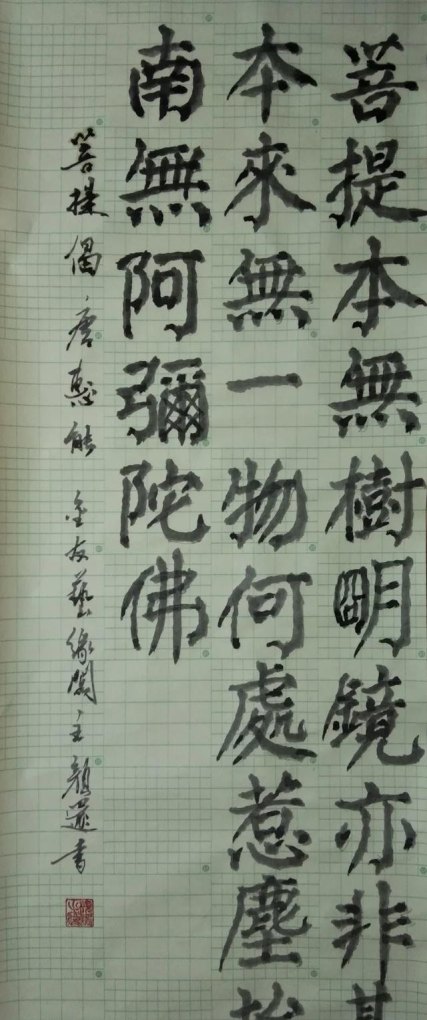 菩提本無樹明鏡亦非其
本來無一物何處惹塵埃
南無阿彌陀佛
菩提偈 唐惠能 金友藝緣閣主顏遜書